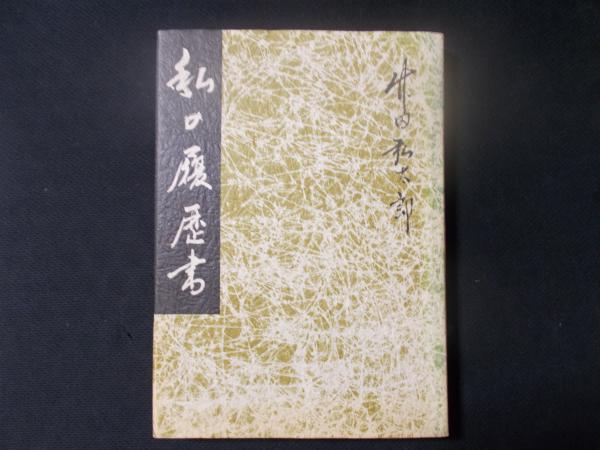 私の履歴書
竹田弘太郎